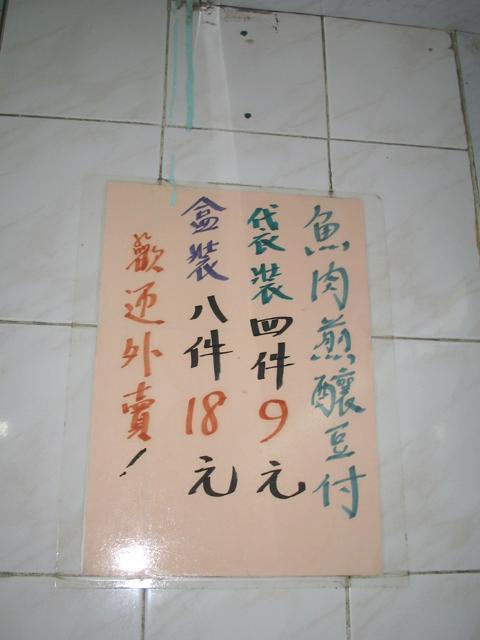 魚肉煎釀豆付
袋裝四件9元
盒裝八件18元
歡迎外賣!